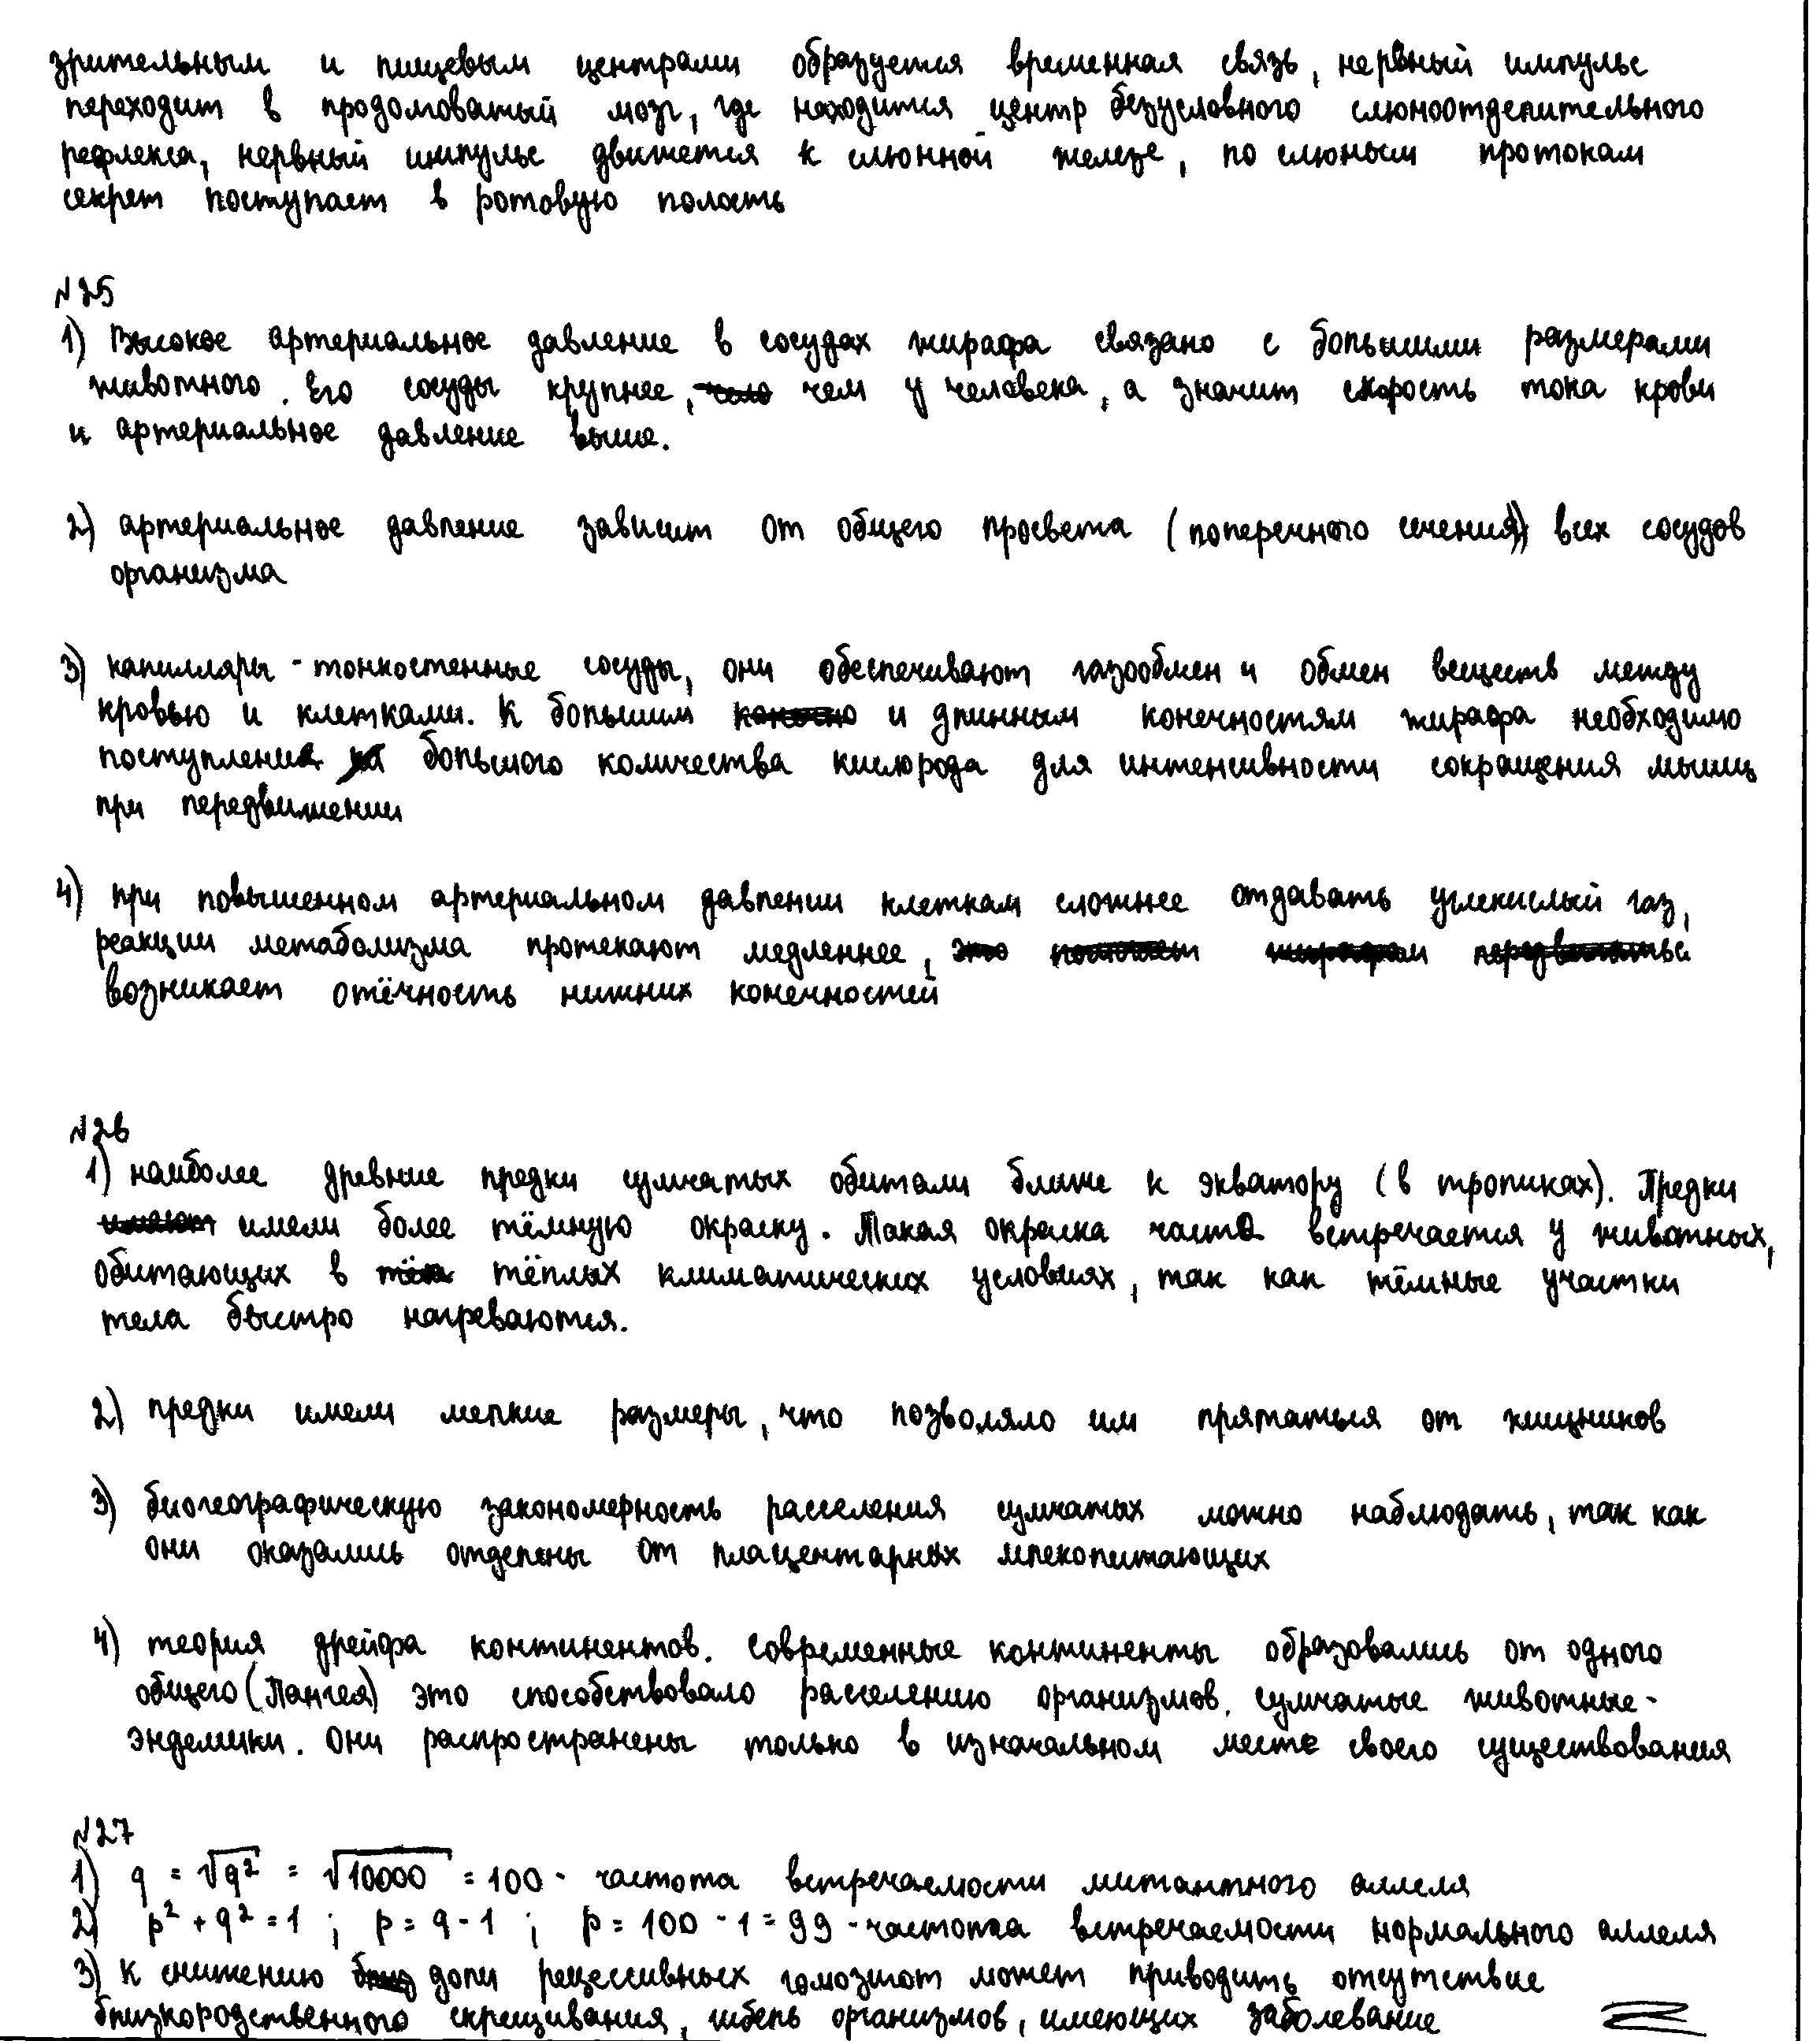 зрительным и пищевым центрами образуется временная связь, нервный импульс
переходит в продолговатый мозг, где находится центр безусловного слюноотделительного
рефлекса, нервный импульс движется к слюнной железе, по слюным протокам
секрет поступает в ротовую полость
№25
1) Высокое артериальное давление в сосудах жирафа связано с большими размерами
животного. Его сосуды крупнее, чем у человека, а значит скорость тока крови
и артериальное давление выше.
2) артериальное давление зависит от общего просвета (поперечного сечения) всех сосудов
организма
3) капилляры - тонкостенные сосуды, они обеспечивают газообмен и обмен веществ между
кровью и клетками. К большим и длинным конечностям жирафа необходимо
поступление большого количества кислорода для интенсивности сокращения мышц
при передвижении
4) при повышенном артериальном давлении клеткам сложнее отдавать углекислый газ,
реакции метаболизма протекают медленнее,
возникает отёчность нижних конечностей
№26
1) наиболее древние предки сумчатых обитали ближе к экватору (в тропиках). Предки
имели более тёмную окраску. Такая окраска часто встречается у животных,
обитающих в тёплых климатических условиях, так как тёмные участки
тела быстро нагреваются.
2) предки имели мелкие размеры, что позволяло им прятаться от хищников
3) биогеографическую закономерность расселения сумчатых можно наблюдать, так как
они оказались отделены от плацентарных млекопитающих
4) теория дрейфа континентов. Современные континенты образовались от одного
общего (Пангея) это способствовало расселению организмов. Сумчатые животные-
эндемики. Они распространены только в изначальном месте своего существования
№27
1) q = √q² = √10000 = 100 - частота встречаемости мутантного аллеля
2) p² + q² = 1 ; p = q - 1 ; p = 100 - 1 = 99 - частота встречаемости нормального аллеля
3) К снижению доли рецессивных гомозигот может приводить отсутствие
близкородственного скрещивания, гибель организмов, имеющих заболевание